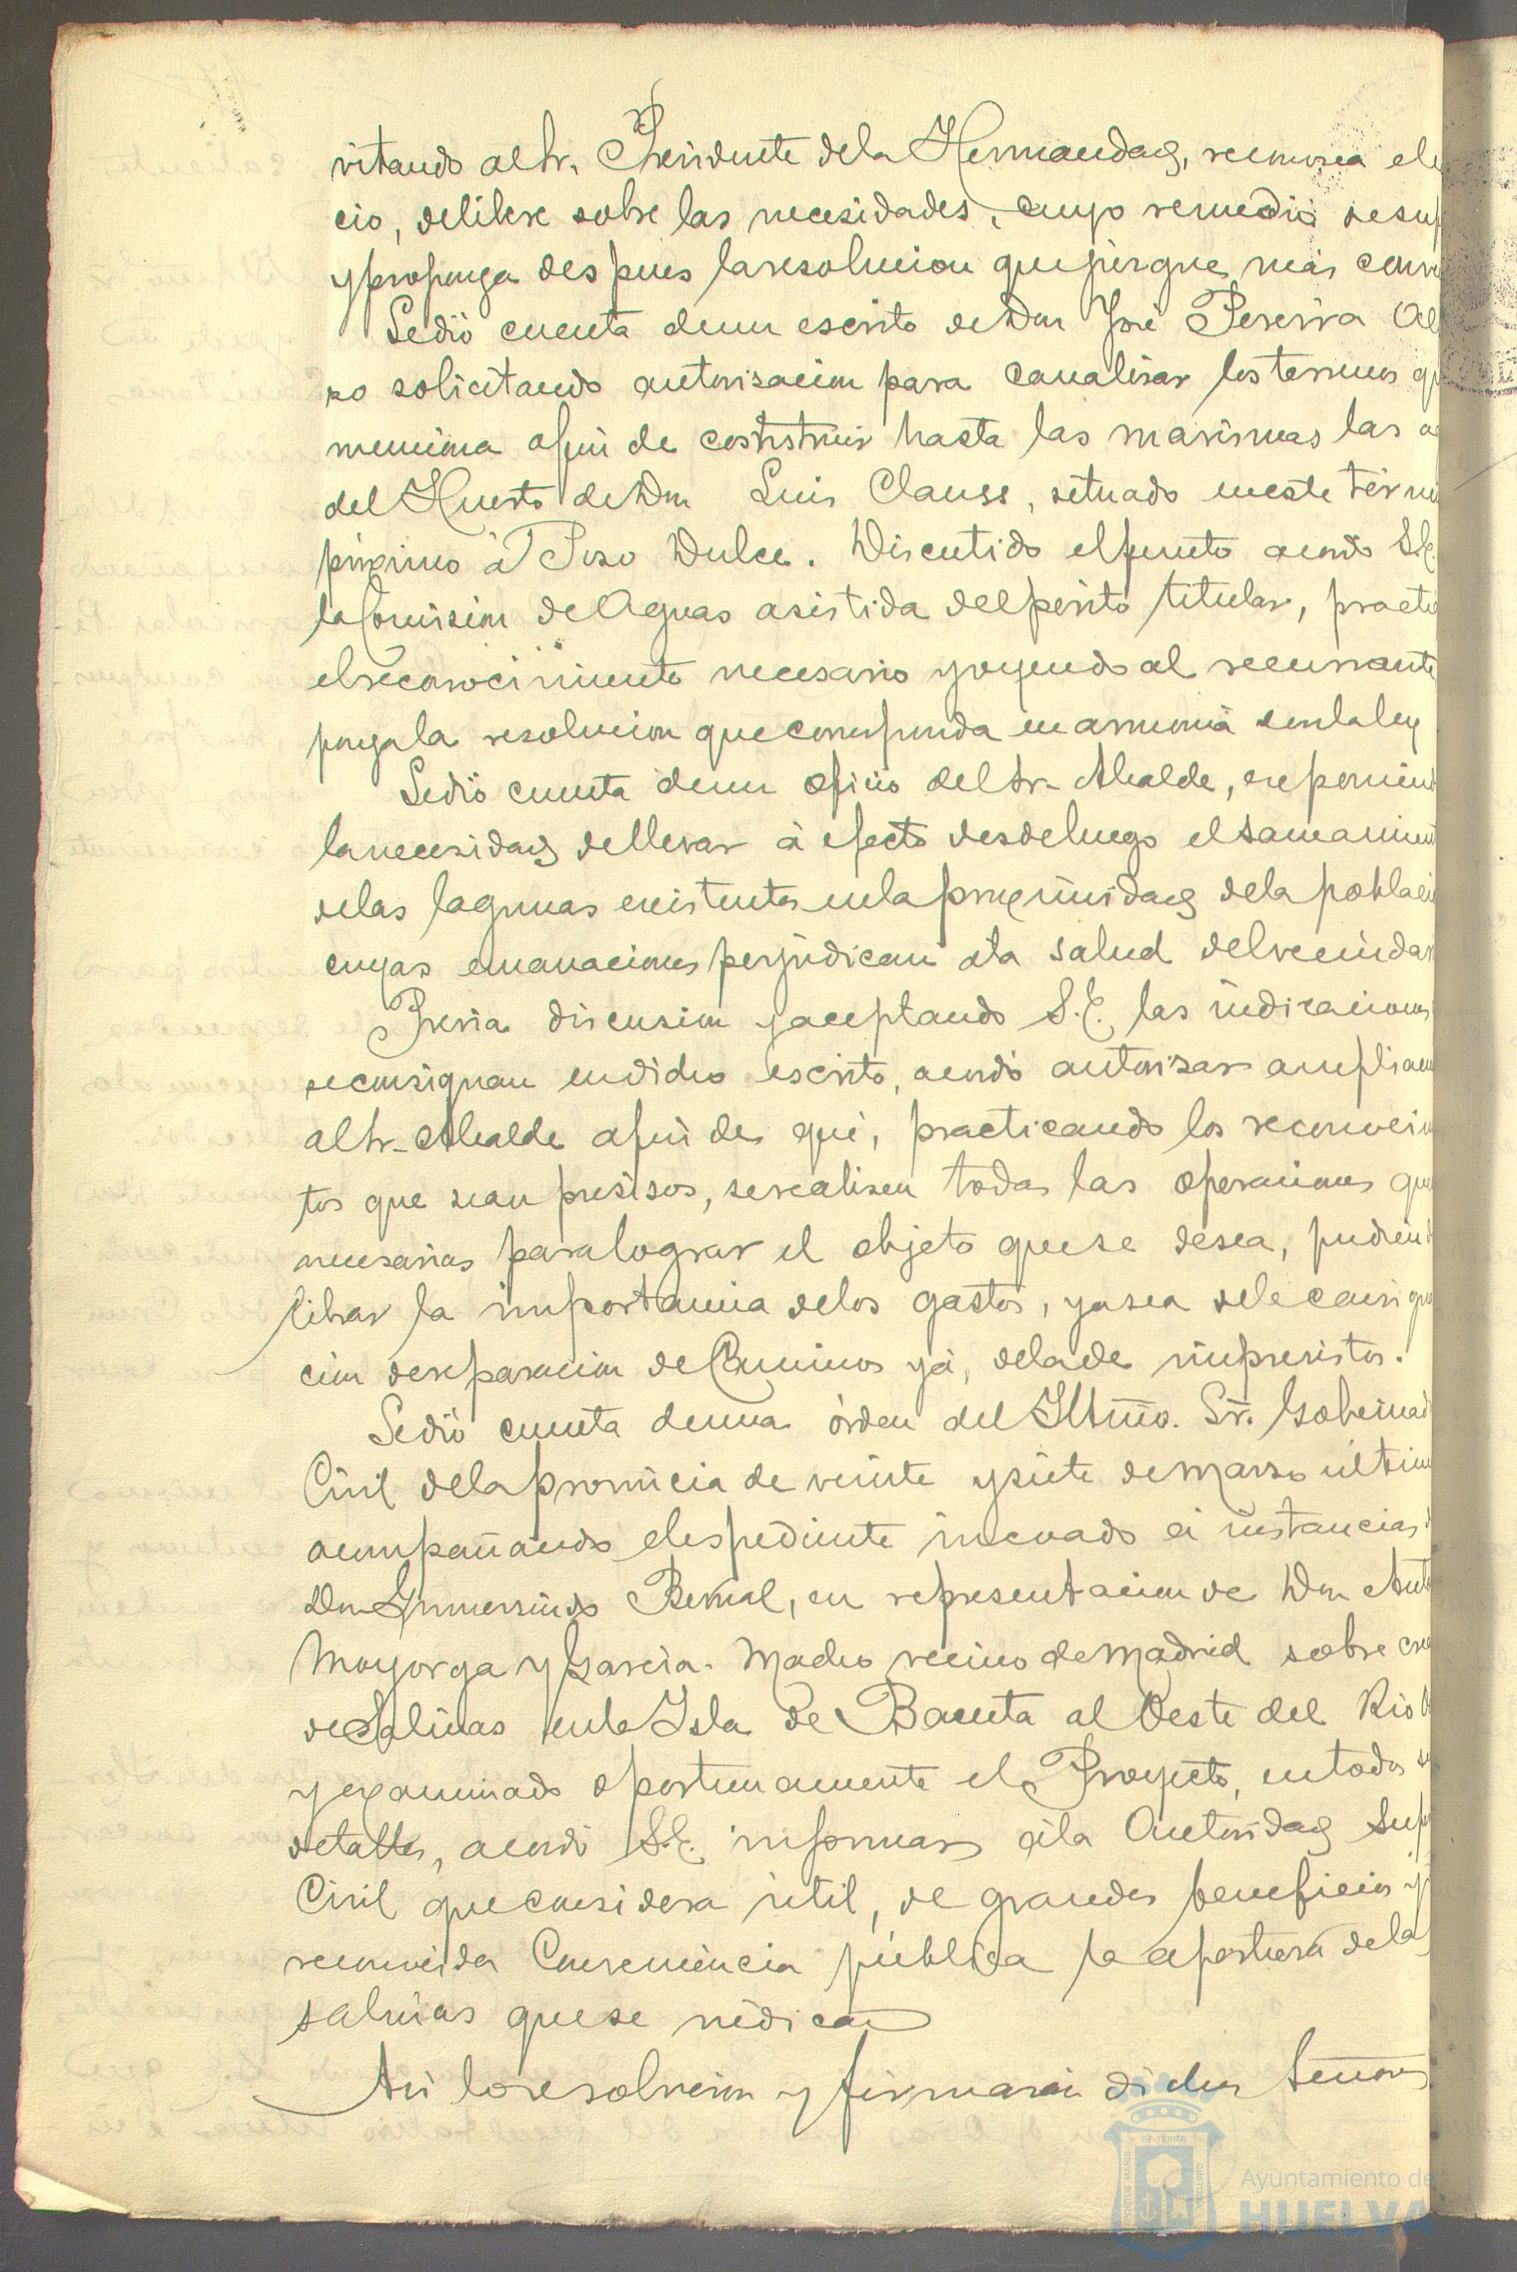 vitando al Sr. Presidente dela Hermandad, reconosca el
cio, delibere sobre las necesidades, cuyo remedio se sup
y proponga despues la resolucion que jusgue más conve
Se dió cuenta de un escrito de Don José Pereira Al
ro solicitando autorisacion para canalisar los terrenos q
menciona afin de costrstruir hasta las marismas las a
del Huerto de Don Luis Clauss, situado en este térmi
prócsimo á Poso Dulce. Discutido el punto acordó S.E.
la Comision de Aguas asistida del perito titular, practi
el reconocimiento necesario y oyendo al recurrante
ponga la resolucion que corresponda en armonia con la ley
Se dió cuenta de un oficio del Sr. Alcalde, exponiend
la necesidad de llevar á efecto desde luego el saneamient
de las lagunas existentes en la proximidad de la poblaci
cuyas emanaciones perjudican á la salud del vecindar
Previa discusion y aceptando S.E. las indicaciones
se consignan en dicho escrito, acordó autorisar ampliam
al Sr. Alcalde afin de que, practicando los reconocim
tos que sean presisos, se realisen todas las operaciones que
necesarias para lograr el objeto que se desea, pudiend
librar la importancia de los gastos, ya sea dele consigna
cion de reparacion de Caminos yá, de la de imprevistos.
Se dió cuenta de una órden del Iltmo. Sr. Gobernad
Civil de la provincia de veinte y siete de Marso último
acompañando el espediente incoado á instancias d
Don Gumersindo Bernal, en representacion de Don Anto
Mayorga y Garcia. Macho vecino de Madrid sobre cre
de Salinas en la Isla de Bacuta al Oeste del Rio O
y examinado oportunamente el Proyecto, en todos s
detalles, acordó S.E. informar á la Autoridad Sup
Civil que considera útil, de grandes beneficios y
reconocida Conveniencia pública la apertura de las
salinas que se indican
Asi lo resolvieron y firmaran dichos Señores
Ayuntamiento de
HUELVA